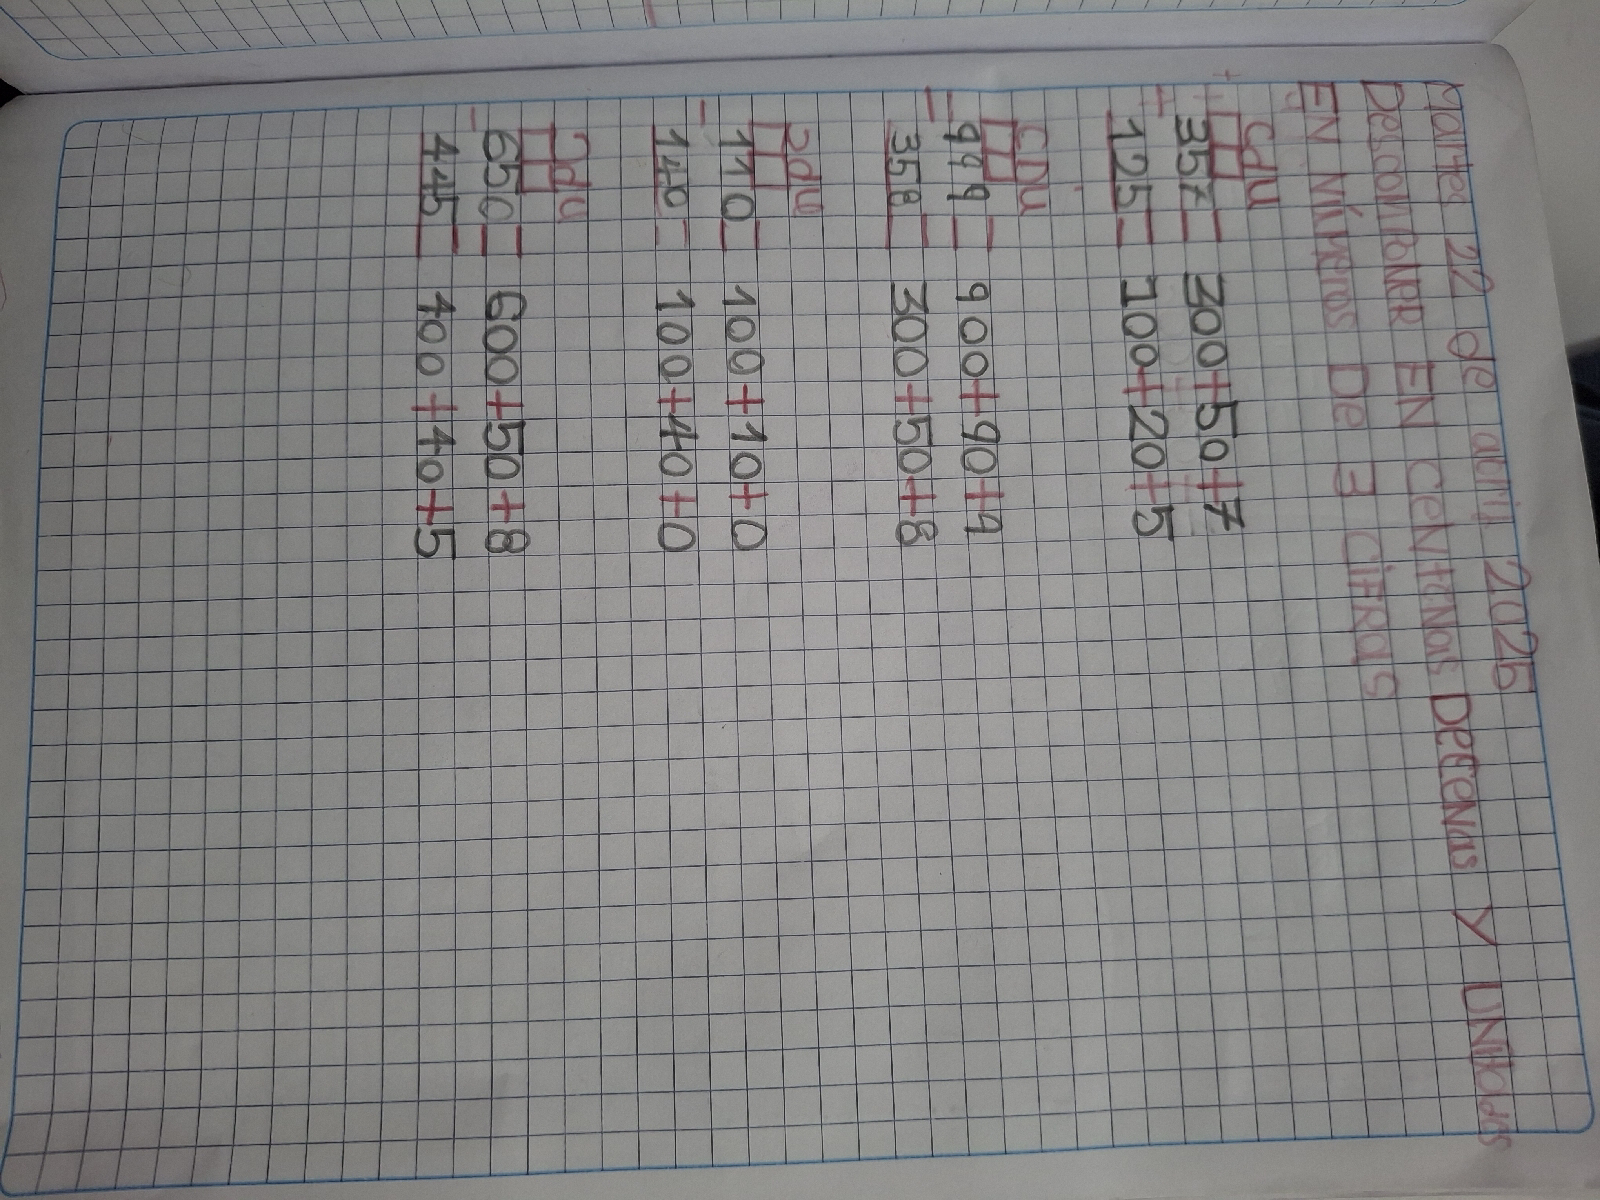 Martes 22 de abril 2025
Descomponer EN CeNteNas DeceNas Y UNidades
EN Números De 3 CiFRas
cdu
+ 357= 300+50+7
125= 100+20+5
CDU
- 999= 900+90+9
358= 300+50+8
cdu
- 110= 100+10+0
140= 100+40+0
cdu
- 650= 600+50+8
445= 400+40+5